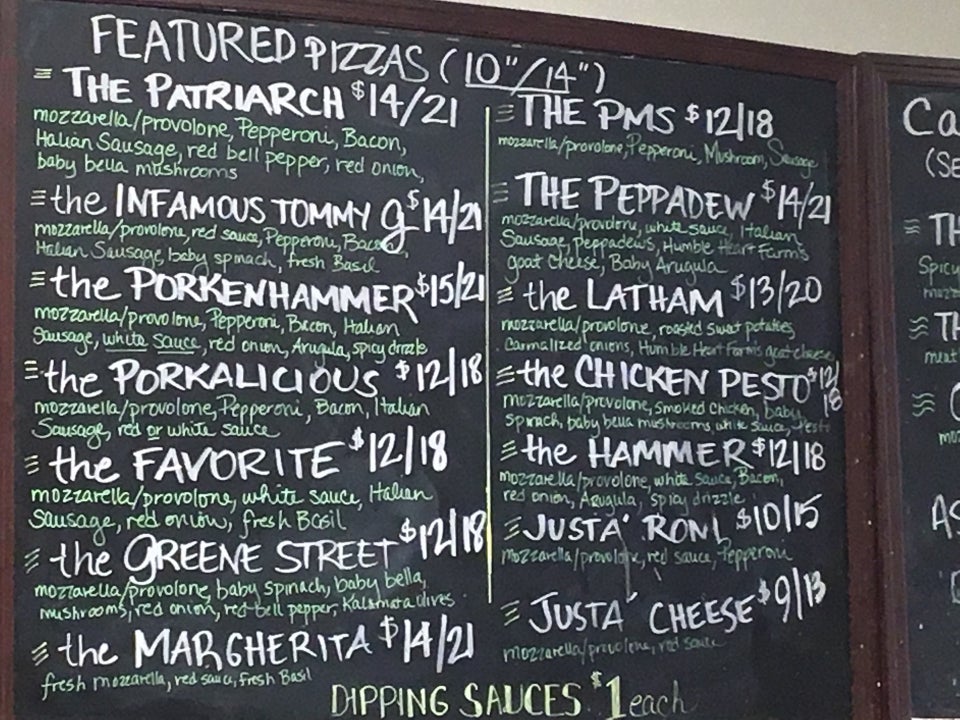 FEATURED PIZZAS (10"/14")
THE PATRIARCH $14/21
mozzarella/provolone, Pepperoni, Bacon,
Italian Sausage, red bell pepper, red onion,
baby bella mushrooms
the INFAMOUS TOMMY G $14/21
mozzarella/provolone, red sauce, Pepperoni, Bacon,
Italian Sausage, baby spinach, fresh Basil
the PORKENHAMMER $15/21
mozzarella/provolone, Pepperoni, Bacon, Italian
Sausage, white sauce, red onion, Arugula, spicy drizzle
the PORKALICIOUS $12/18
mozzarella/provolone, Pepperoni, Bacon, Italian
Sausage, red or white sauce
the FAVORITE $12/18
mozzarella/provolone, white sauce, Italian
Sausage, red onion, fresh Basil
the GREENE STREET $12/18
mozzarella/provolone, baby spinach, baby bella,
mushrooms, red onion, red bell pepper, Kalamata olives
the MARGHERITA $14/21
fresh mozzarella, red sauce, fresh Basil
THE PMS $12/18
mozzarella/provolone, Pepperoni, Mushroom, Sausage
THE PEPPADEW $14/21
mozzarella/provolone, white sauce, Italian
Sausage, peppadews, Humble Heart Farm's
goat cheese, Baby Arugula
the LATHAM $13/20
mozzarella/provolone, roasted sweet potatoes,
carmalized onions, Humble Heart Farm's goat cheese
the CHICKEN PESTO $12/18
mozzarella/provolone, smoked chicken, baby
spinach, baby bella mushrooms, white sauce, pesto
the HAMMER $12/18
mozzarella/provolone, white sauce, Bacon,
red onion, Arugula, spicy drizzle
JUSTA' RONI $10/15
mozzarella/provolone, red sauce, Pepperoni
JUSTA' CHEESE $9/13
mozzarella/provolone, red sauce
DIPPING SAUCES $1 each
Ca
(SE
TH
Spicy
mozz
TH
meat
C
mo
AS